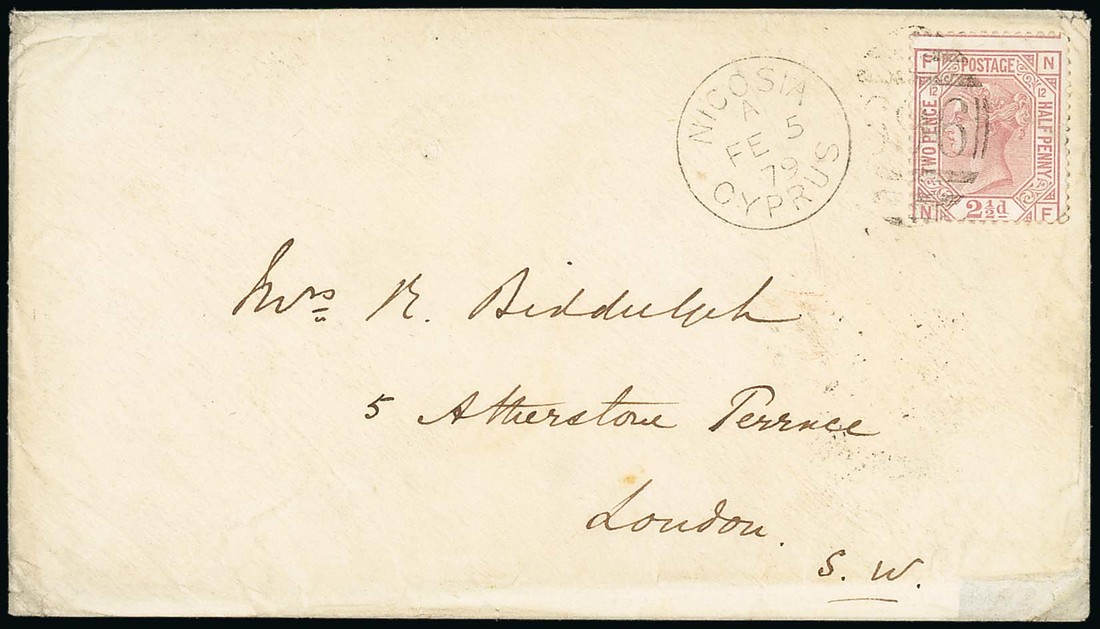 NICOSIA
A
FE 5
79
CYPRUS
F POSTAGE N
12 12
TWO PENCE
HALFPENNY
N 2½d F
Mrs R. Biddulph
5 Atherstone Terrace
London.
S. W.